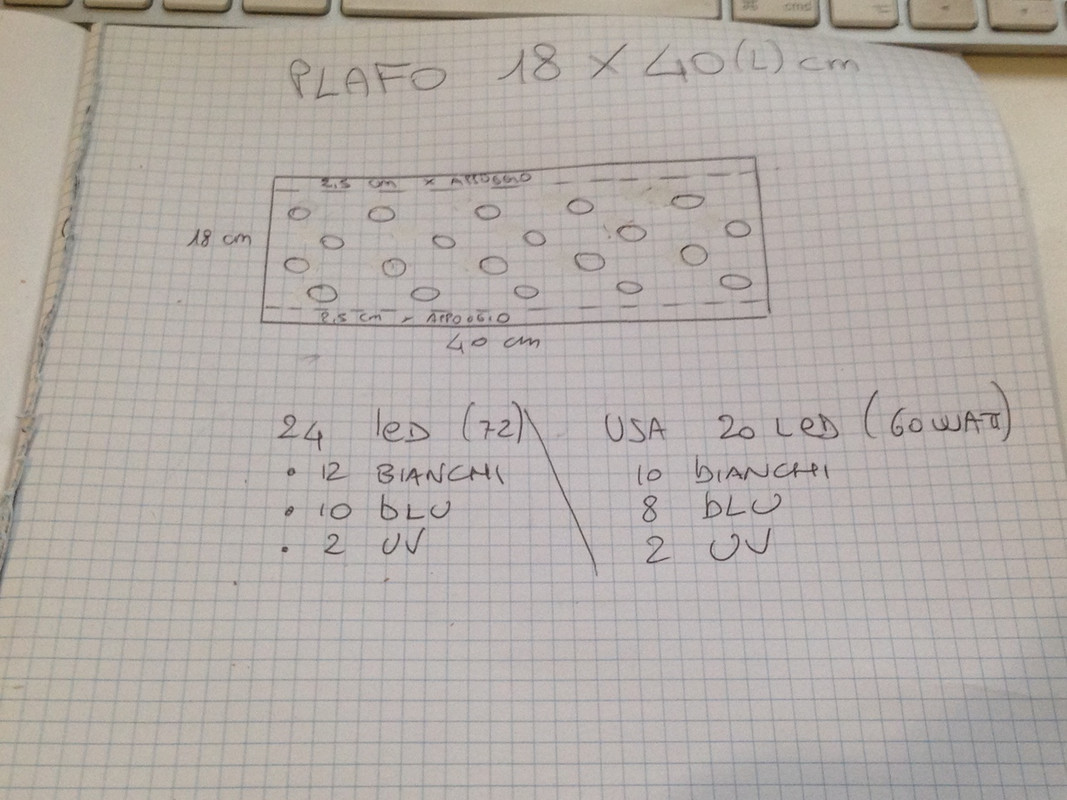 PLAFO 18 X 40 (L) cm
2,5 cm x APPOGGIO
18 cm
2,5 cm x APPOGGIO
40 cm
24 leD (72)
• 12 BIANCHI
• 10 bLU
• 2 UV
USA 20 LeD (60 WATT)
10 bIANCHI
8 bLU
2 UV